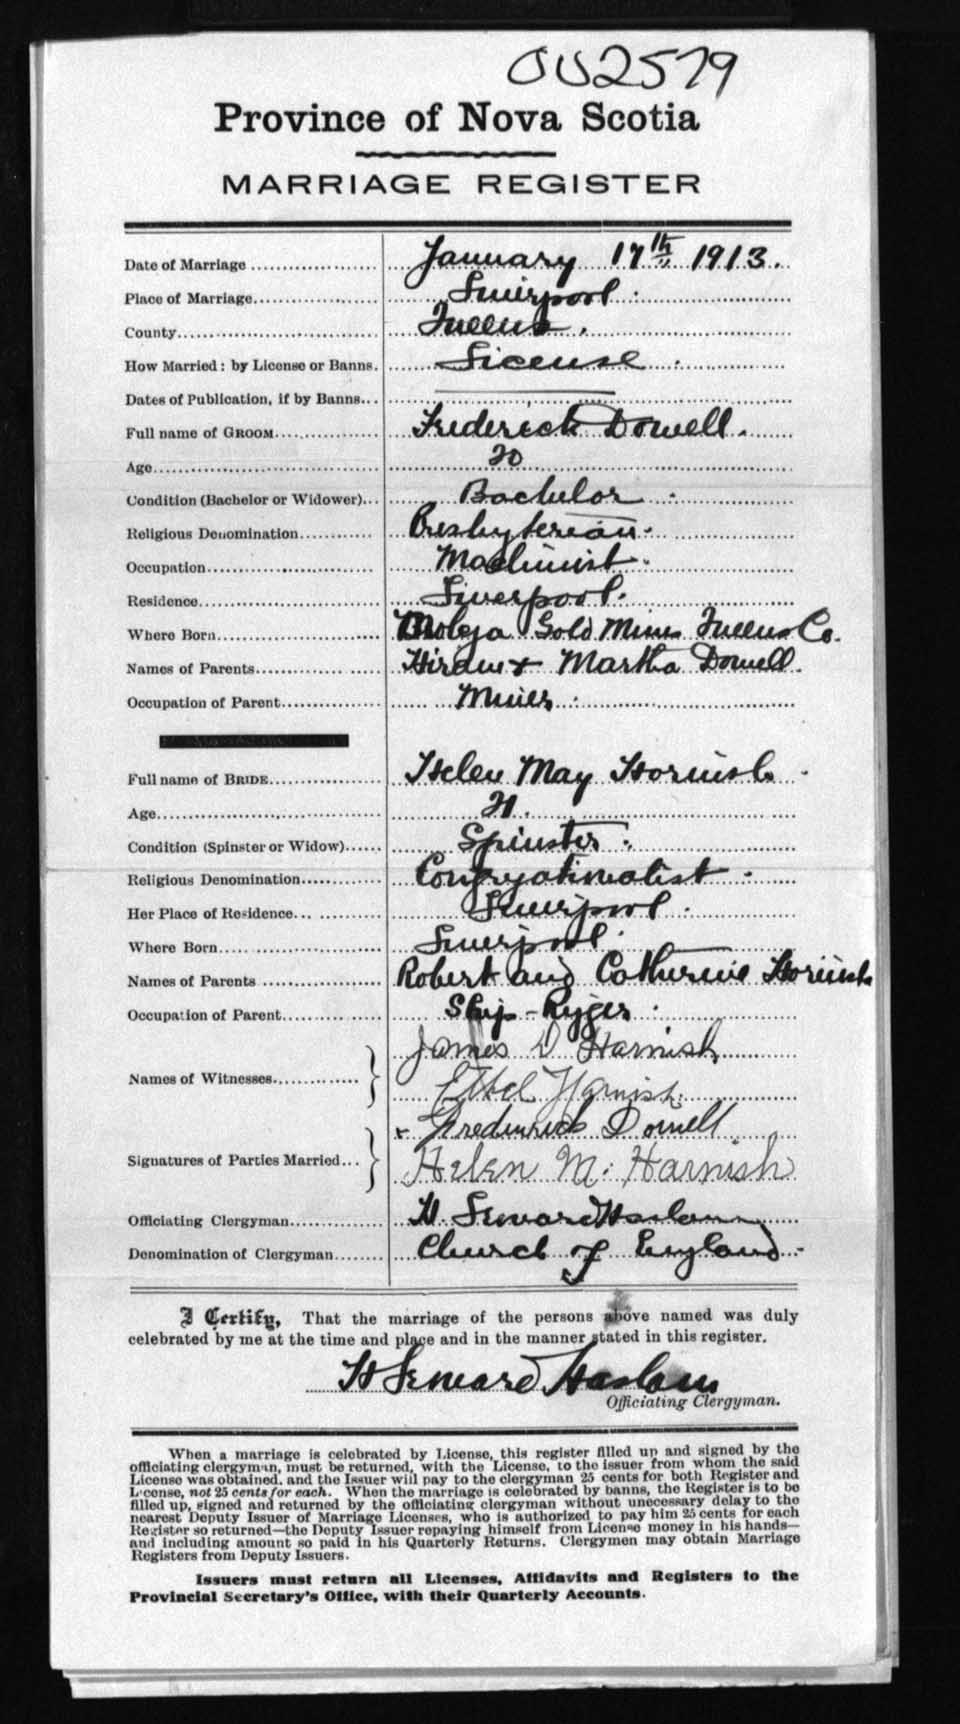 002579
Province of Nova Scotia
MARRIAGE REGISTER
Date of Marriage January 17th 1913.
Place of Marriage Liverpool.
County Queens.
How Married: by License or Banns. License.
Dates of Publication, if by Banns
Full name of GROOM Frederick Dowell.
Age 20
Condition (Bachelor or Widower) Bachelor.
Religious Denomination Presbyterian.
Occupation Machinist.
Residence Liverpool.
Where Born Molega Gold Mines Queens Co.
Names of Parents Hiram & Martha Dowell.
Occupation of Parent Miner.
Full name of BRIDE Helen May Harnish.
Age 21.
Condition (Spinster or Widow) Spinster.
Religious Denomination Congregationalist.
Her Place of Residence Liverpool.
Where Born Liverpool.
Names of Parents Robert and Catherine Harnish
Occupation of Parent Ship-Rigger.
Names of Witnesses James D Harnish
Ethel Harnish.
Signatures of Parties Married Frederick Dowell.
Helen M. Harnish
Officiating Clergyman H Seward Haslam
Denomination of Clergyman Church of England.
I Certify, That the marriage of the persons above named was duly
celebrated by me at the time and place and in the manner stated in this register.
H Seward Haslam
Officiating Clergyman.
When a marriage is celebrated by License, this register filled up and signed by the
officiating clergyman, must be returned, with the License, to the issuer from whom the said
License was obtained, and the Issuer will pay to the clergyman 25 cents for both Register and
License, not 25 cents for each. When the marriage is celebrated by banns, the Register is to be
filled up, signed and returned by the officiating clergyman without unecessary delay to the
nearest Deputy Issuer of Marriage Licenses, who is authorized to pay him 25 cents for each
Register so returned—the Deputy Issuer repaying himself from License money in his hands—
and including amount so paid in his Quarterly Returns. Clergymen may obtain Marriage
Registers from Deputy Issuers.
Issuers must return all Licenses, Affidavits and Registers to the
Provincial Secretary's Office, with their Quarterly Accounts.